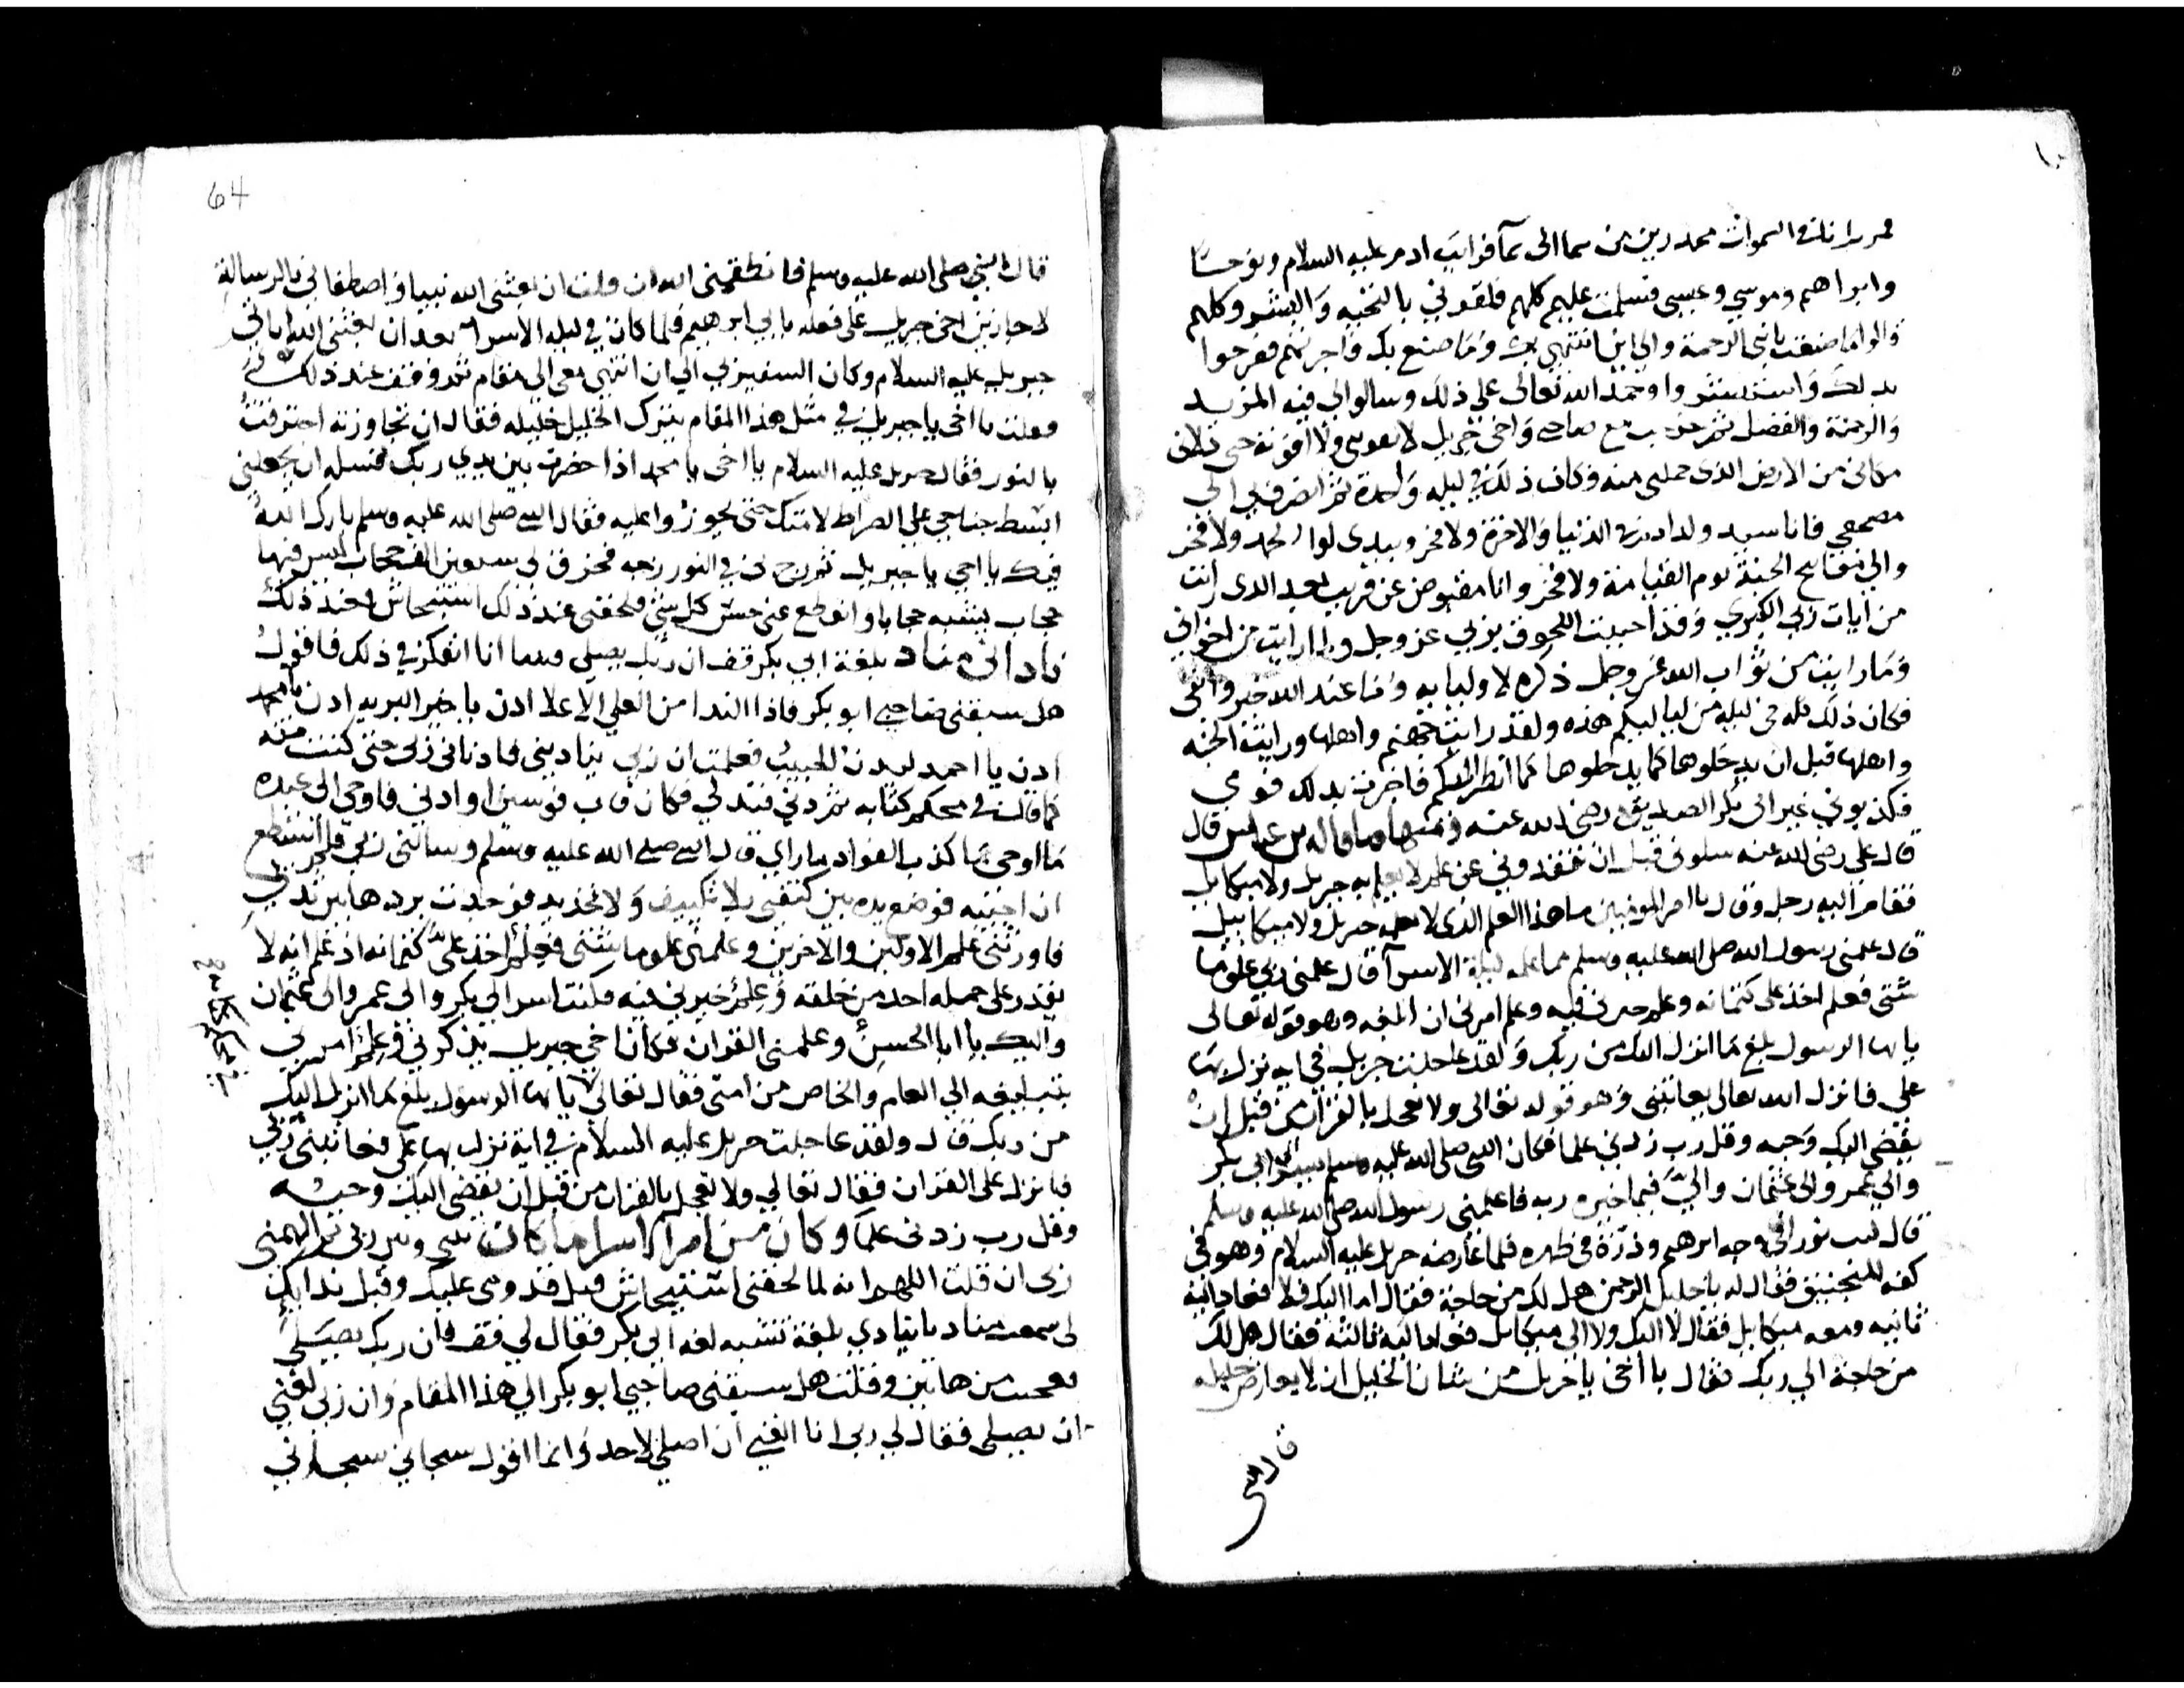 فمررنا تلك السموات منحدرين من سما الى سما فرايت ادم عليه السلام ونوحا
وابراهيم وموسي وعيسى فسلمت عليهم كلهم فلقوني بالتحيه والبشر وكلهم
قالوا ما صنعت يا نبي الرحمة والي اين انتهي بك وما صنع بك فاخبرتهم ففرحوا
بذلك واستبشروا وحمدوا الله تعالى على ذلك وسالوا لي فيه المزيد
والرحمة والفضل ثم مع صاحبي واخي جبريل لا يفوتني ولا افوته حتى
مكاني من الارض الذي حملني منه وكان ذلك في ليله واحدة ثم انصرف بي الي
مضجعي فانا سيد ولد ادم في الدنيا والاخرة ولا فخر وبيدي لوا الحمد ولا فخر
والي مفاتيح الجنة يوم القيامة ولا فخر وانا مقبوض عن قريب بعد الذي رايت
من ايات ربي الكبري وقد احببت اللحوق بربي عز وجل ولما رايت من اخواني
وما رايت من ثواب الله عز وجل ذكره لاوليايه وما عند الله خير وابقى
فكان ذلك كله في ليله من لياليكم هذه ولقد رايت جهنم واهلها ورايت الجنه
واهلها قبل ان يدخلوها كما يدخلوها كما انظر اليكم فاخبرت بذلك قومي
فكذبوني غير ابي بكر الصديق رضي الله عنه ومنها ما قاله بن عباس قال
قال علي رضي الله عنه سلوني قبل ان تفقدوني عن علم لا يعلمه جبريل ولا ميكايل
فقام اليه رجل وقال يا امير المومنين ما هذا العلم الذي لا يعلمه جبريل ولا ميكاييل
قال علمني رسول الله صلى الله عليه وسلم مما علمه ليلة الاسرآ قال علمني ربي علوما
شتى فعلم اخذ على كتمانه وعلم خيرني فيه وعلم امرني ان ابلغه وهو قوله تعالى
يايها الرسول بلغ ما انزل اليك من ربك ولقد عاجلت جبريل في ايه نزل بها
علي فانزل الله تعالى يعاتبني وهو قوله تعالى ولا تعجل بالقران من قبل ان
يقضي اليك وحيه وقل رب زدني علما فكان النبي صلى الله عليه وسلم يسر الى ابي بكر
والي عمر والى عثمان واليّ فيما خيره ربه فاعلمني رسول الله صلى الله عليه وسلم
قال كنت نورا في وجه ابرهيم وذرة في ظهره فلما عارضه جبريل عليه السلام وهو في
كفه المنجنيق فقال له يا خليل الرحمن هل لك من حاجة فقال اما اليك فلا فعاد اليه
ثانيه ومعه ميكايل فقال لا اليك ولا الى ميكايل فعاد اليه ثالثه فقال هل لك
من حاجة الي ربك فقال يا اخي يا جبريل من شان الخليل ان لا يعارض خليله
قال النبي
64
قال النبي صلى الله عليه وسلم فانطقني الله ان قلت ان بعثني الله نبيا واصطفاني بالرسالة
لاجازين اخي جبريل على فعله بابي ابرهيم فلما كان في ليله الاسرا بعد ان بعثني الله اتاني
جبريل عليه السلام وكان السفير لي الي ان انتهى معي الى مقام ثم وقف عند ذلك
فقلت يا اخي يا جبريل في مثل هذا المقام يترك الخليل خليله فقال ان تجاوزته احترقت
بالنور فقال جبريل عليه السلام يا اخى يا محمد اذا حضرت بين يدي ربك فسله ان يجعلني
ابسط جناحي على الصراط لامتك حتى يجوزوا عليه فقال النبي صلى الله عليه وسلم بارك الله
فيك يا اخي يا جبريل ثم زج بي في النور زجه فخرق لي سبعين الف حجاب ليس فيها
حجاب يشبه حجابا وانقطع عني حس كل شي فلحقني عند ذلك استيحاش فعند ذلك
ناداني مناد بلغة ابي بكر قف ان ربك يصلي فبينما انا اتفكر في ذلك فاقول
هل سبقني صاحبي ابو بكر فاذا الندا من العلي الاعلا ادن يا خير البريه ادن يا محمد
ادن يا احمد ليدن الحبيب فعلمت ان ربي يناديني فادناني ربي حتى كنت منه
كما قال في محكم كتابه ثم دني فتدلى فكان قاب قوسين او ادني فاوحي الى عبده
ما اوحى ما كذب الفواد ما راي قال النبي صلى الله عليه وسلم وسالني ربي فلم استطع
ان اجيبه فوضع يده بين كتفي بلا تكييف ولا تحديد فوجدت بردها بين ثديي
فاورثني علم الاولين والاخرين وعلمني علوما شتى فعلم اخذ عليّ كتمانه اذ علم انه لا
يقدر على حمله احد من خلقه وعلم خيرني فيه فكنت اسر الى ابي بكر والي عمر والى عثمان
واليك يا ابا الحسن وعلمني القران فكان اخي جبريل يذكرني وعلم امرني
بتبليغه الي العام والخاص من امتى فقال تعالى يايها الرسول بلغ ما انزل اليك
من ربك قال ولقد عاجلت جبريل عليه السلام في اية نزل بها علي فعاتبني ربي
فانزل على القران فقال تعالي ولا تعجل بالقران من قبل ان يقضى اليك وحيه
وقل رب زدني علما وكان من امر الاسرا ما كان بيني وبين ربي ثم الهمني
ربي ان قلت اللهم انه لما لحقني استيحاش قبل قدومي عليك وقبل ندايك
لي سمعت مناديا ينادي بلغة تشبه لغه ابي بكر فقال لي قف فان ربك يصلي
فعجبت من هاتين وقلت هل سبقني صاحبي ابو بكر الى هذا المقام وان ربي لغني
ان يصلي فقال لي ربي انا الغني ان اصلي لاحد وانما اقول سبحاني سبحاني